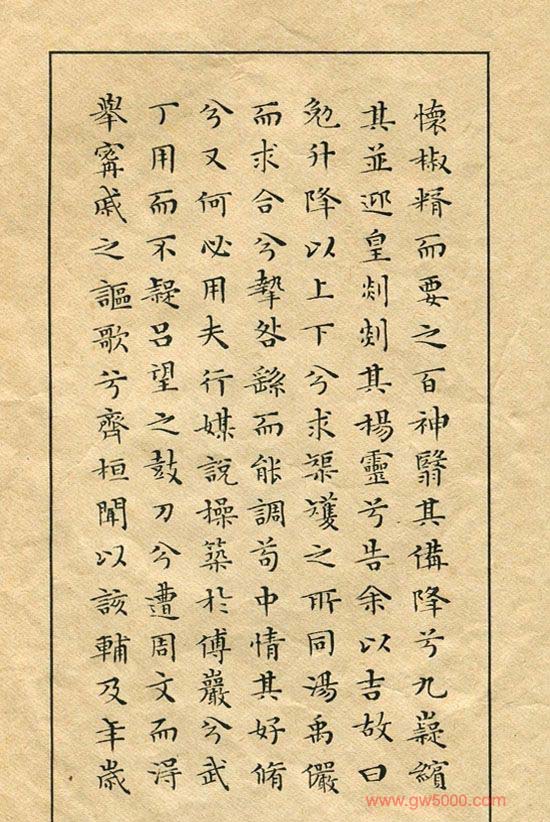 懷椒糈而要之百神翳其備降兮九嶷繽
其並迎皇剡剡其揚靈兮告余以吉故曰
勉升降以上下兮求榘矱之所同湯禹儼
而求合兮摯咎繇而能調苟中情其好脩
兮又何必用夫行媒說操築於傅巖兮武
丁用而不疑呂望之鼓刀兮遭周文而得
舉甯戚之謳歌兮齊桓聞以該輔及年歲
www.gw5000.com